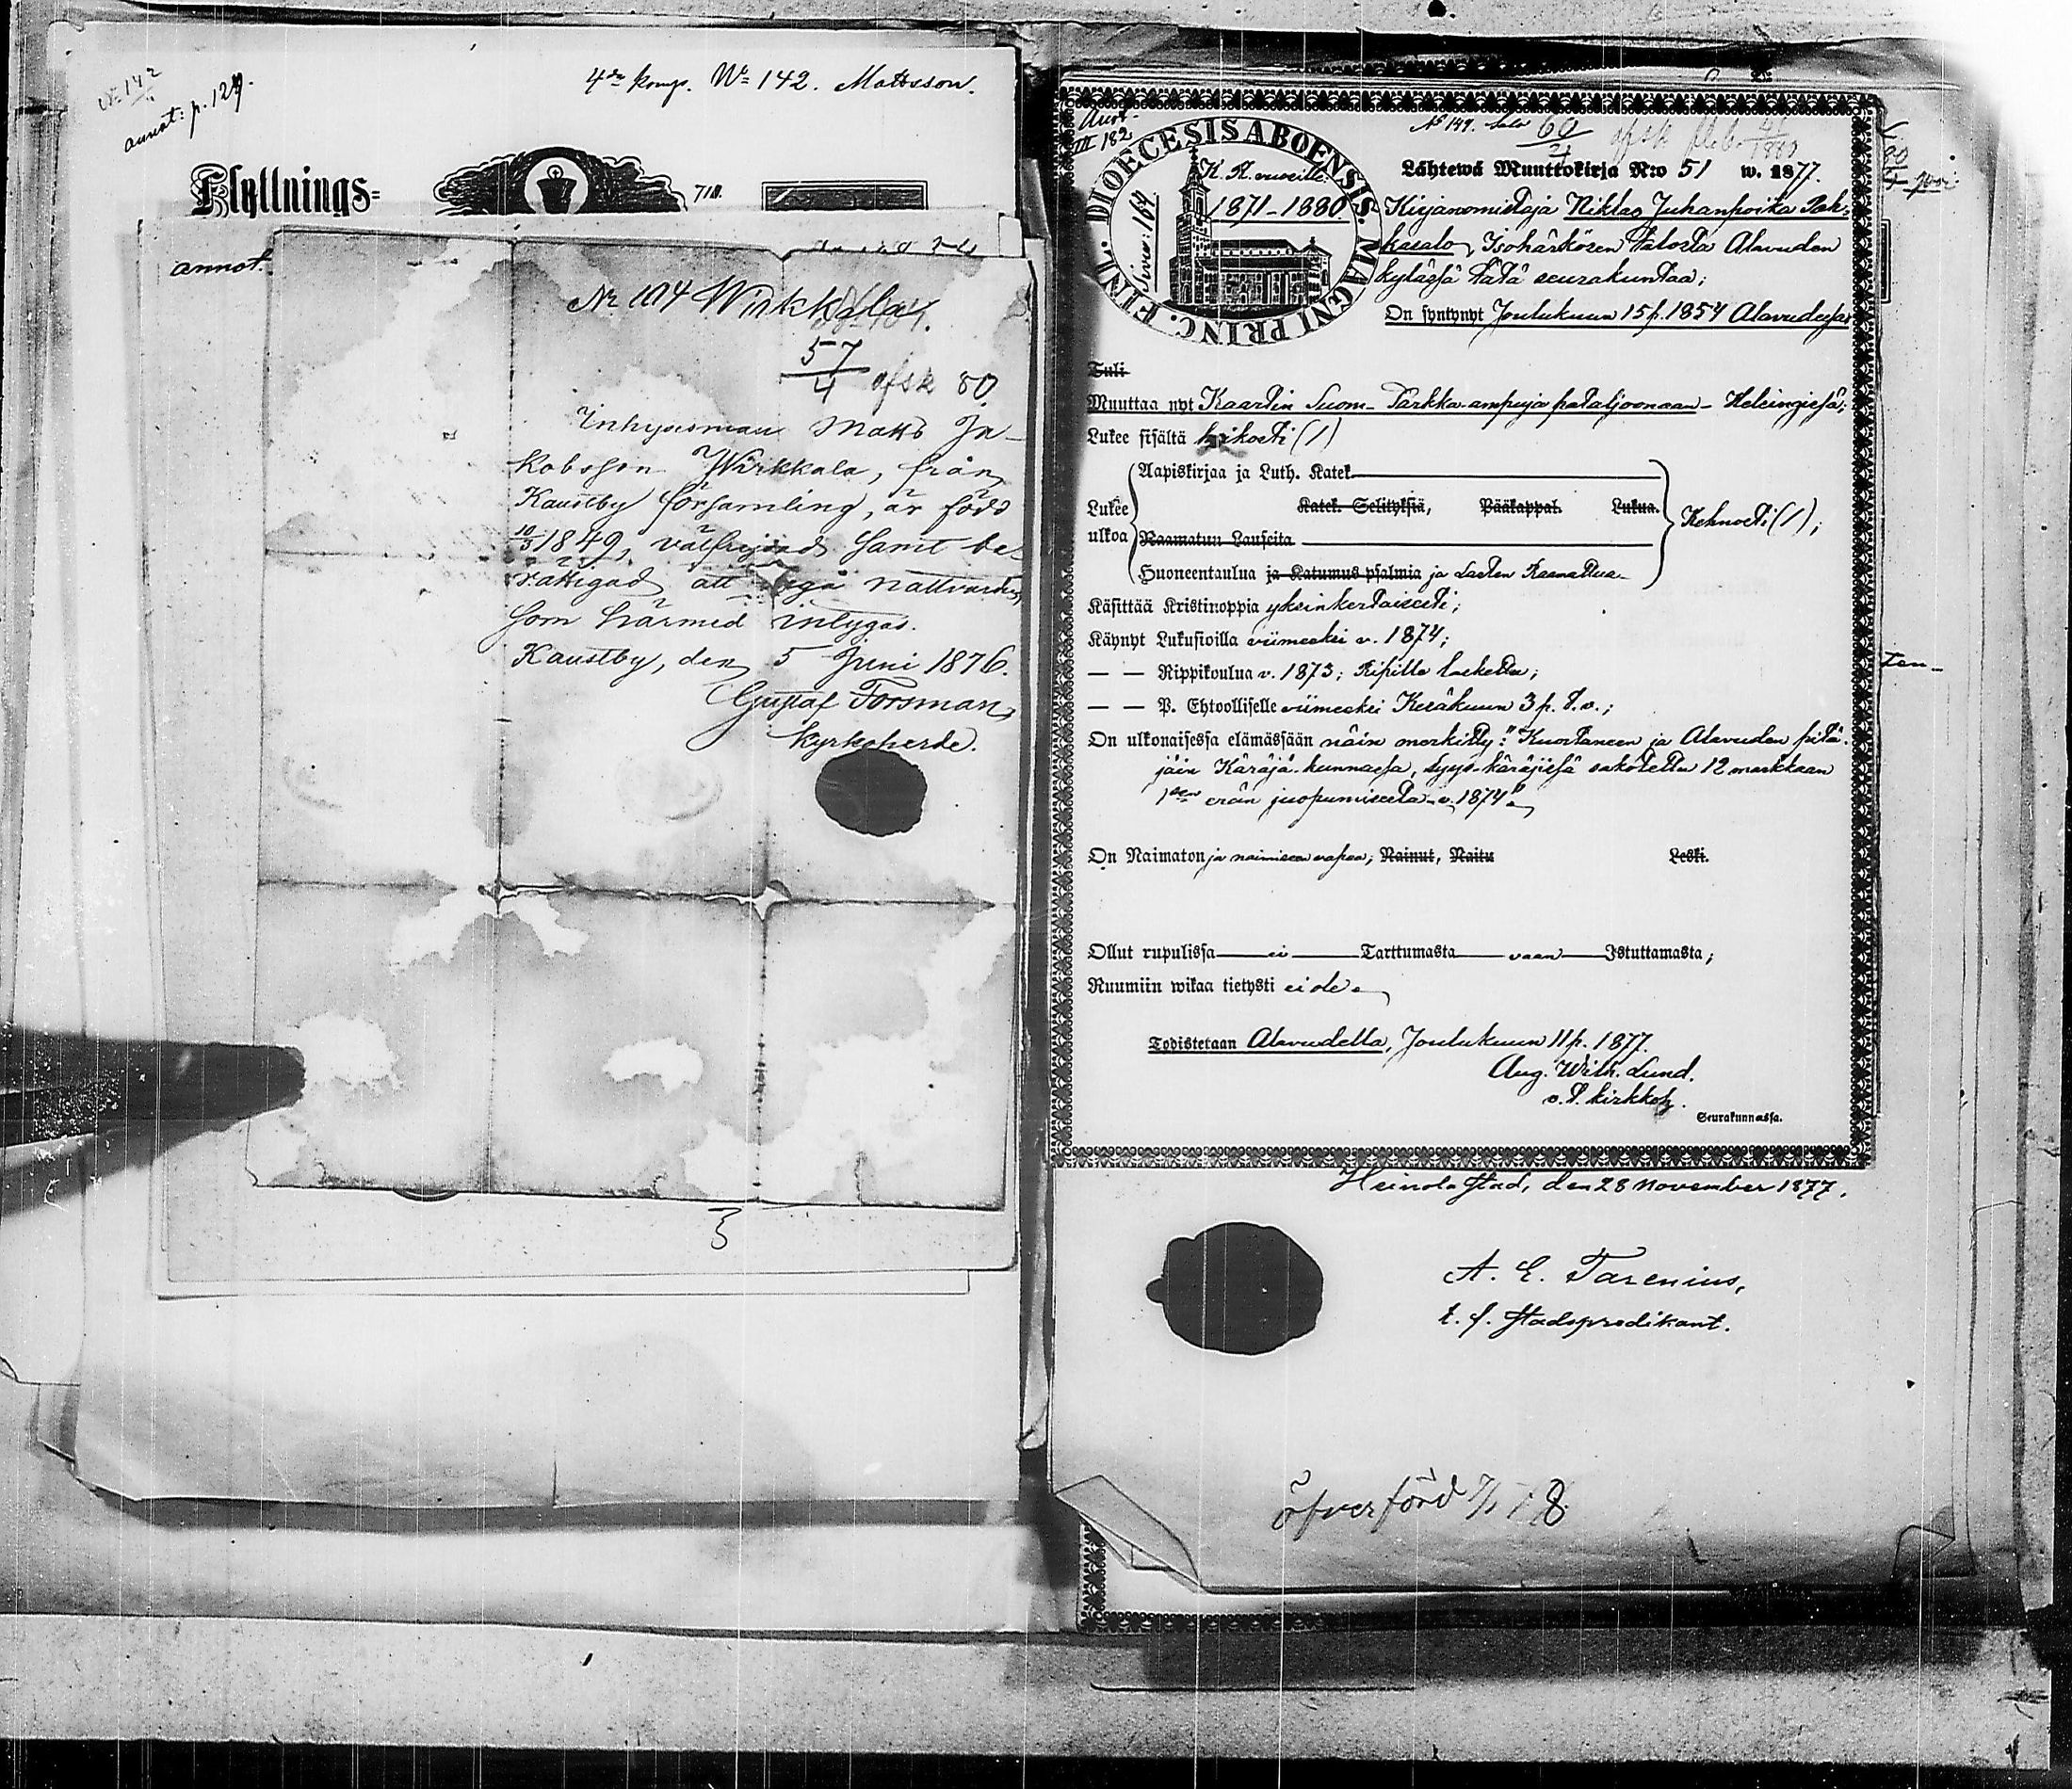 No 142
annot: p. 129.
4de komp. No 142. Mattsson.
Flyttnings=
718.
annot.
Nr 104 Wirkkala
57/4 afsk 80
Inhysesman Matts Ja-
kobsson Wirkkala, från
Kaustby församling, är född
10/3 1849, välfrejdad samt be-
rättigad att begå nattvarden,
som härmed intygas.
Kaustby, den 5 Juni 1876.
Gustaf Forsman,
Kyrkoherde.
3
Annot.
III 182
DIOECESIS ABOENSIS. MAGNI PRINC. FINL.
K. K. vuosilta:
1871-1880
Sivu. 164
No 149. Salo 60/4 afsk
Lähtewä Muuttokirja N:o 51 w. 1877.
Kirjanomistaja Niklas Juhanpoika
kasalo, Isohärkösen talosta Alavuden
kylässä tätä seurakuntaa;
On syntynyt Joulukuun 15 p. 1854 Alavudessa
Tuli
Muuttaa nyt Kaartin Suom. Tarkka-ampuja pataljoonaan - Helsingissä;
Lukee sisältä heikosti (1)
Lukee ulkoa
Aapiskirjaa ja Luth. Katek.
Katek. Selityksiä, Pääkappal. Lukua.
Raamatun Lauseita
Huoneentaulua ja Katumus psalmia ja Lasten Raamattua
Kehnosti (1);
Käsittää Kristinoppia yksinkertaisesti;
Käynyt Lukusioilla viimeksi v. 1874;
— — Rippikoulua v. 1873; Ripille laskettu;
— — P. Ehtoolliselle viimeksi Kesäkuun 3 p. t.v.;
On ulkonaisessa elämässään näin merkitty: "Kuortaneen ja Alavuden pitä-
jäin Käräjä-kunnassa, syys-käräjissä sakotettu 12 markkaan
1sen erän juopumisesta v. 1874".
On Naimaton ja naimiseen vapaa; Nainut, Naitu Leski.
Ollut rupulissa ei Tarttumasta vaan Istuttamasta;
Ruumiin wikaa tietysti ei ole.
Todistetaan Alavudella, Joulukuun 11 p. 1877.
Aug. Wilh. Lund.
v.t. kirkkoh.
Seurakunnassa.
Heinola stad, den 28 November 1877.
A. E. Tarenius,
t. f. Stadspredikant.
öfverförd 7/1 78